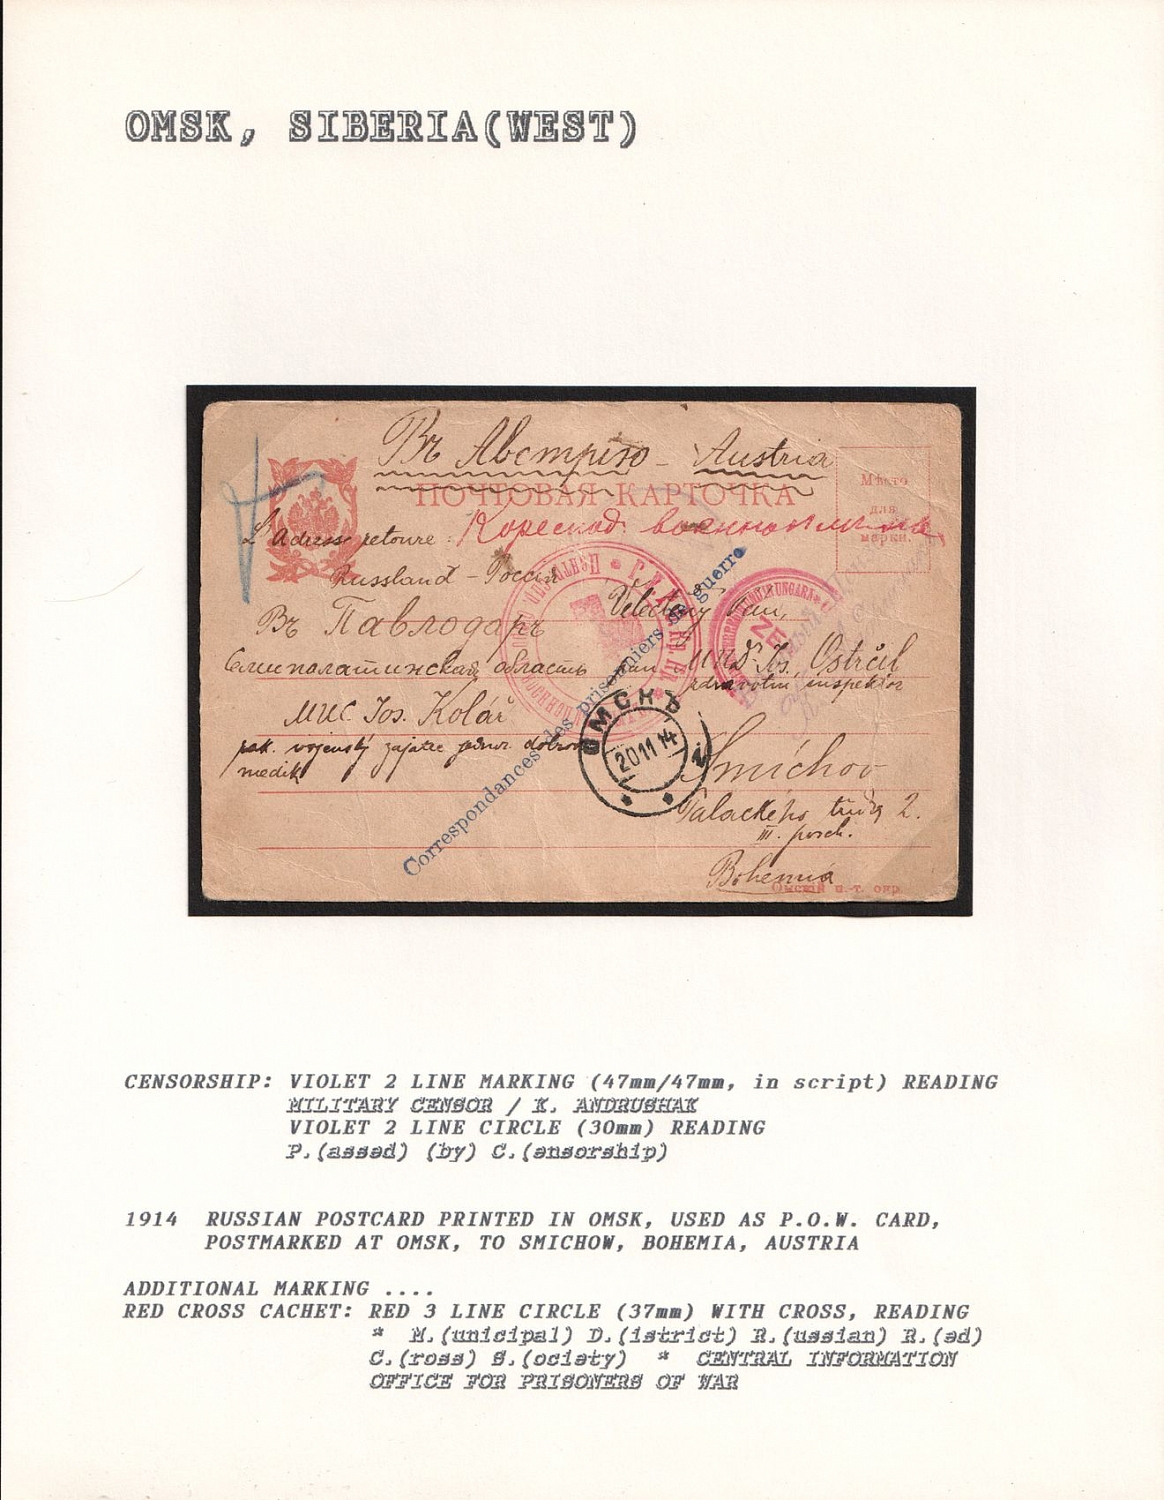 OMSK, SIBERIA(WEST)
Въ Австрію - Austria
ПОЧТОВАЯ КАРТОЧКА
Мѣсто
для
марки.
L'adresse retoure:
Russland - Россія
Въ Павлодаръ
Семипалатинская область
MUC Jos. Kolář
Velectěný Pan,
pan MUDr. Jos. Ostrčil
zdravotní inspektor
Smíchov
Palackého třída 2.
III. posch.
Bohemia
Correspondances des prisonniers de guerre
ОМСКЪ
20 11 14
Омскій п.-т. окр.
CENSORSHIP: VIOLET 2 LINE MARKING (47mm/47mm, in script) READING
MILITARY CENSOR / K. ANDRUSHAK
VIOLET 2 LINE CIRCLE (30mm) READING
P.(assed) (by) C.(ensorship)
1914 RUSSIAN POSTCARD PRINTED IN OMSK, USED AS P.O.W. CARD,
POSTMARKED AT OMSK, TO SMICHOW, BOHEMIA, AUSTRIA
ADDITIONAL MARKING ....
RED CROSS CACHET: RED 3 LINE CIRCLE (37mm) WITH CROSS, READING
* M.(unicipal) D.(istrict) R.(ussian) R.(ed)
C.(ross) S.(ociety) * CENTRAL INFORMATION
OFFICE FOR PRISONERS OF WAR